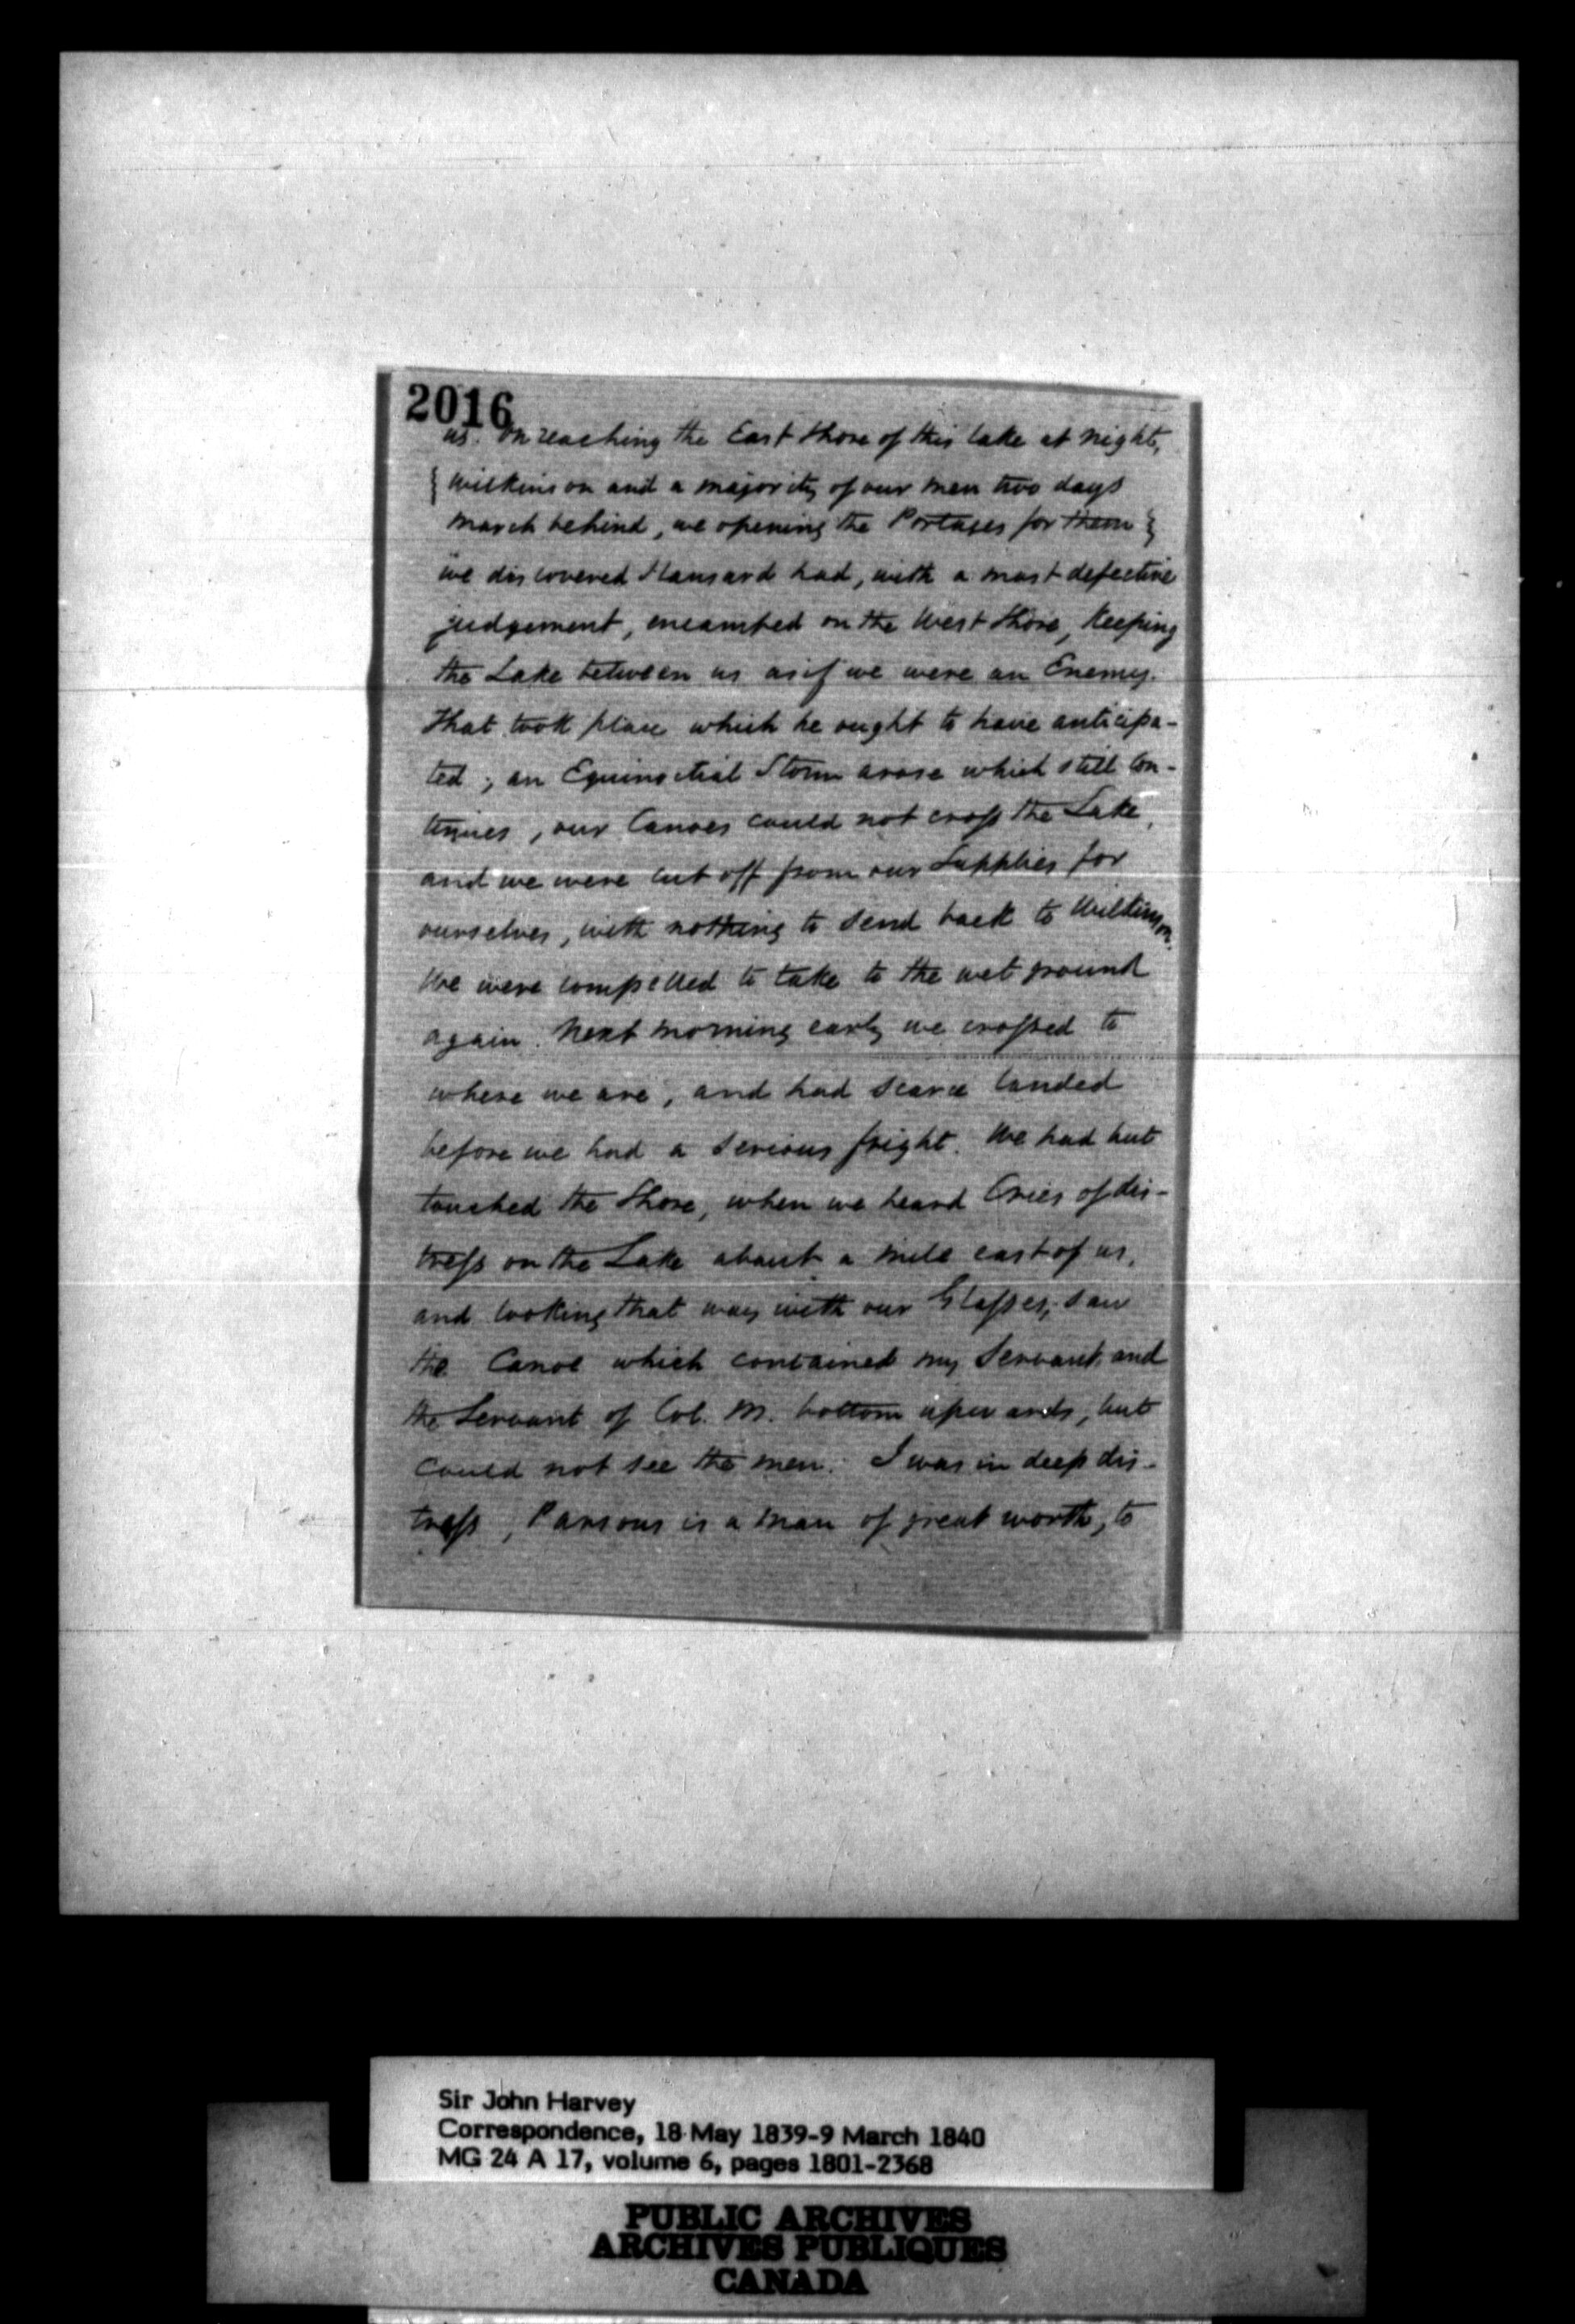 2016
us. On reaching the East Shore of this lake at night,
{ Wilkinson and a majority of our men two days
march behind, we opening the Portages for them }
we discovered Hansard had, with a most defective
judgement, encamped on the West Shore, Keeping
the Lake between us as if we were an Enemy.
That took place which he ought to have anticipa-
ted ; an Equinoctial Storm arose which still Con-
tinues , our Canoes could not cross the Lake,
and we were cut off from our Supplies for
ourselves, with nothing to send back to Wilkinson.
We were compelled to take to the wet ground
again. Next morning early we crossed to
where we are, and had scarce landed
before we had a serious fright. We had but
touched the Shore, when we heard Cries of dis-
tress on the Lake about a mile east of us,
and looking that way with our Glasses, saw
the Canoe which contained my Servant and
the Servant of Col. M. bottom upwards, but
could not see the men. I was in deep dis-
tress , Parsons is a man of great worth, to
Sir John Harvey
Correspondence, 18 May 1839-9 March 1840
MG 24 A 17, volume 6, pages 1801-2368
PUBLIC ARCHIVES
ARCHIVES PUBLIQUES
CANADA